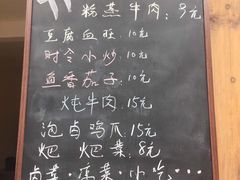 粉蒸牛肉:9元
豆腐血旺.10元
时令小炒.10元
鱼香茄子:10元
炖牛肉.15元
泡卤鸡爪.15元
粑粑菜:8元
卤菜·凉菜·小吃···